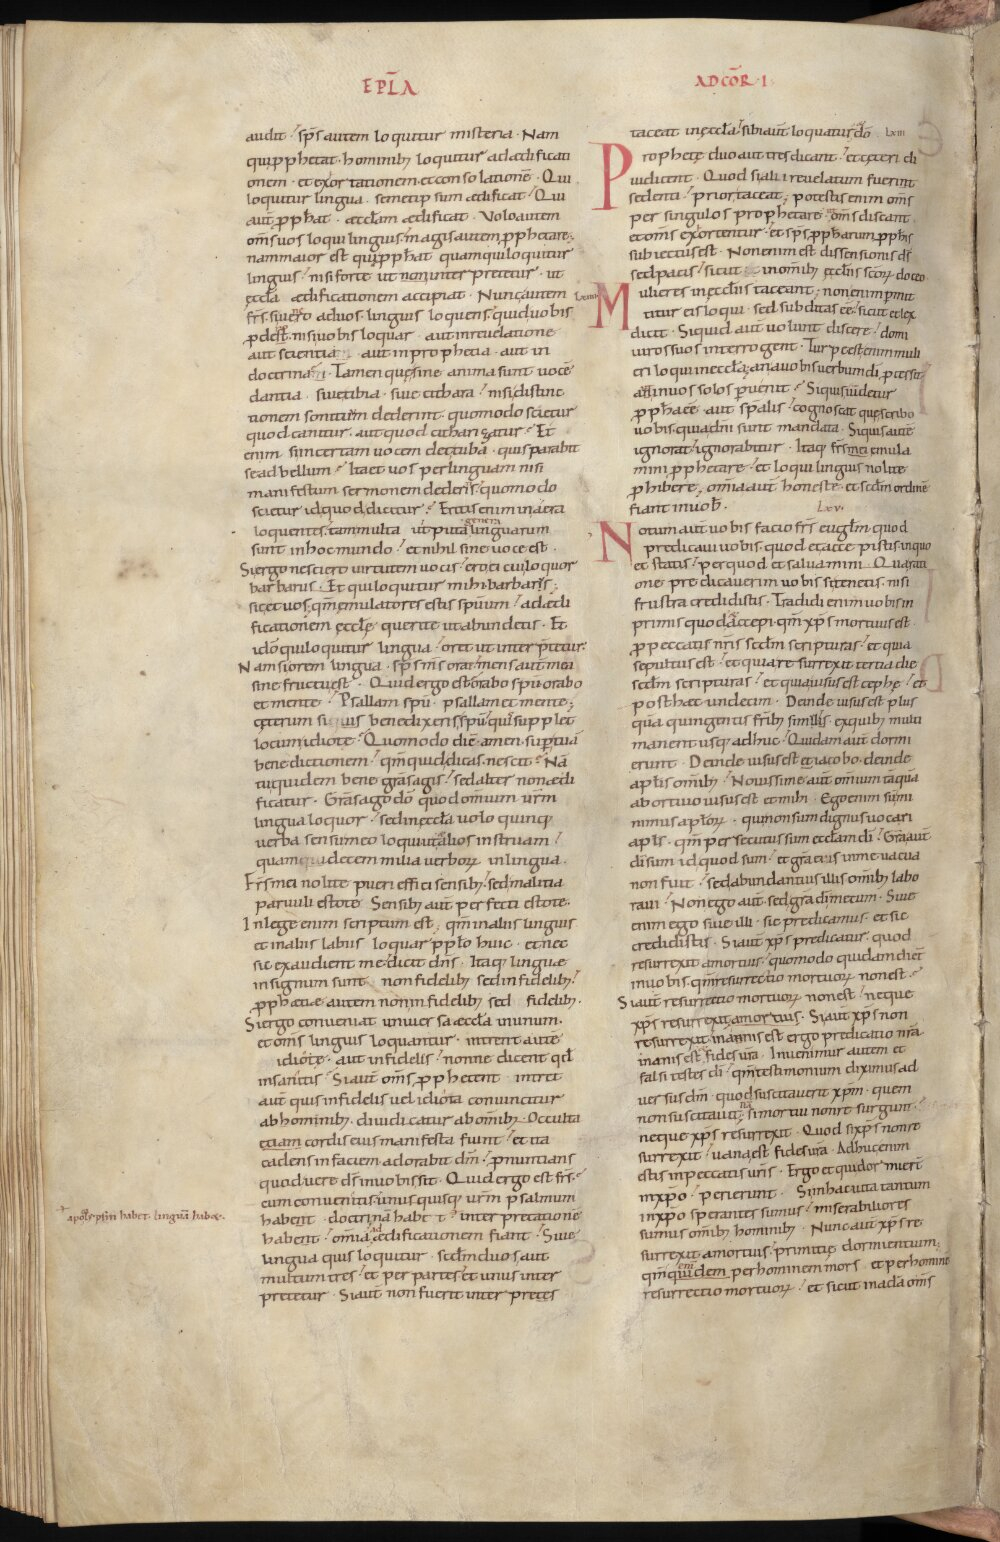 EPL̄A
audit ; sp̄s autem loquitur misteria · Nam
qui p̱phetat · hominib; loquitur ad ædificati
onem · et exortationem et consolationē · Qui
loquitur lingua · semetipsum ædificat ; Qui
aut̄ p̱phat · æccl̄am ædificat · Volo autem
om̄s uos loqui linguis · magis autem p̱phetare ;
nam maior est qui p̱phat quam qui loquitur
linguis ; nisi forte ut non interpretetur · ut
ęccl̄a ædificationem accipiat · Nunc autem
fr̄s · si uero ad uos · linguis loquens · quid uobis
p̱dest · nisi uobis loquar · aut in reuelatione
aut scientia · aut in prophetia · aut in
doctrina · Tamen quę sine anima sunt uocē
dantia · siue tibia · siue cithara ; nisi distinc
tionem sonituum dederint · quomodo scietur
quod canitur · aut quod citharizatur ; Et
enim si incertam uocem det tuba · quis parabit
se ad bellum ; Ita et uos per linguam nisi
manifestum sermonem dederitis · quomodo
scietur id quod dicitur ; Eritis enim in aera
loquentes · tam multa ut puta genera linguarum
sunt in hoc mundo ; et nihil sine uoce est ·
Si ergo nesciero uirtutem uocis ; ero ei cui loquor
barbarus · Et qui loquitur mihi barbarus ;
sic et uos · qm̄ emulatores estis sp̄uum ; ad ædi
ficationem ęccl̄ę querite ut abundetis · Et
ido qui loquitur lingua ; oret ut interp̄tetur ·
Nam si orem lingua · sp̄s m̄s orat ; mens aut̄ mea
sine fructu est · Quid ergo est · orabo sp̄u · orabo
et mente ; Psallam sp̄u · psallam et mente ;
cęterum si benedixeris sp̄u ; qui supplet
locum idiotę ; Quomodo dic̄ · amen · sup̱ tuā
benedictionem ; qm̄ quid dicas · nescit ; Nā
tu quidem bene grās agis ; sed alter non ædi
ficatur · Grās ago dō quod omnium ur̄m
lingua loquor ; sed in ęccl̄a uolo quinq;
uerba sensu meo loqui ut alios instruam ;
quam decem milia uerborꝝ in lingua ·
Fr̄s mei nolite pueri effici sensib; ; sed malitia
paruuli estote · Sensib; aut̄ perfecti estote ·
In lege enim scriptum est ; qm̄ in aliis linguis
et in aliis labiis loquar pp̱lo huic · et nec
sic exaudient me · dicit dn̄s · Itaq; linguæ
in signum sunt non fidelib; sed infidelib; ;
p̱phetiæ autem non infidelib; sed fidelib; ·
Si ergo conueniat uniuersa æccl̄a in unum ·
et om̄s linguis loquantur · intrent autē
idiotę · aut infideles ; nonne dicent qd̄
insanitis ; Si aut̄ om̄s p̱phetent intret
aut̄ quis infidelis uel idiota conuincitur
ab hominib; diiudicatur ab om̄ib; · Occulta
etiam cordis eius manifesta fiunt ; et ita
cadens in faciem adorabit dm̄ ; p̱nuntians
quod uere d̄s in uobis sit · Quid ergo est fr̄s ;
cum conuenitis · unusquisq; ur̄m psalmum
habent · doctrinā habet ; interpretatione
habent ; omia ad ædificationem fiant ; Siue
lingua quis loquitur · scd̄m duos aut
multum tres ; et per partes et unus inter
pretetur · Si aut̄ non fuerit interpretes
apol̄s · psm̄ habet · linguā habet ·
AD COR̄ · I ·
taceat in ęccl̄a ; sibi aut̄ loquatur et dō · lxiii
Prophetę duo aut tres dicant ; et ceteri di
iudicent · Quod si alii reuelatum fuerint
sedenti ; prior taceat ; potestis enim om̄s
per singulos prophetare ; om̄s discant
et om̄s exortentur ; et sp̄s p̱phetarum p̱phis
subiectus est · Non enim est dissensionis d̄s
sed pacis ; sicut in om̄ib; ęccl̄iis sc̄orꝝ doceo
lxiiii Mulieres in ęccl̄iis taceant ; non enim p̱mit
titur eis loqui · sed subditas eē ; sicut et lex
dicit · Si quid aut̄ uolunt discere ; domi
uiros suos interrogent · Turpe est enim muli
eri loqui in eccl̄a ; an a uobis uerbum di p̱cessit
aut in uos solos p̱uenit ; Si quis uidetur
p̱phate aut sp̄alis ; cognoscat quę scribo
uobis · quia dn̄i sunt mandata · Si quis autē
ignorat ; ignorabitur · Itaq; fr̄s mei ęmula
mini p̱phetare ; et loqui linguis nolite
p̱hibere ; om̄ia aut̄ honeste · et scd̄m ordinē
fiant in uob̄ · Lxv ·
Notum aut̄ uobis facio fr̄s eugl̄m · quod
predicaui uobis · quod et accepistis · in quo
et statis ; per quod et saluamini · Qua rati
one predicauerim uobis si tenetis · nisi
frustra credidistis · Tradidi enim uobis in
primis quod et accepi · qm̄ xp̄s mortuus est
p̱ peccatis nr̄is scd̄m scripturas ; et quia
sepultus est ; et quia resurrexit tertia die
scd̄m scripturas ; et quia uisus est cephę ; et
post hæc undecim · Deinde uisus est plus
qua quingentis frīb; simul ; ex quib; multi
manent usq; adhuc ; Quidam aut̄ dormi
erunt · Deinde uisus est et iacobo · deinde
apl̄is om̄ib; ; Nouissime aut̄ omnium tāquā
abortiuo uisus est et mihi · Ego enim sū mi
nimus apl̄orꝝ · qui non sum dignus uocari
apl̄s · qm̄ persecutus sum eccl̄am di ; Gr̄a aut̄
di sum id quod sum ; et gr̄a eius in me uacua
non fuit ; sed abundantius illis om̄ib; labo
raui ; Non ego aut̄ · sed gr̄a di mecum · Siue
enim ego siue illi · sic predicamus · et sic
credidistis · Si aut̄ xp̄s predicatur · quod
resurrexit a mortuis ; quomodo quidam dicēt
in uobis · qm̄ resurrectio mortuorꝝ non est ;
Si aut̄ resurrectio mortuorꝝ non est ; neque
xp̄s resurrexit a mortuis · Si aut̄ xp̄s non
resurrexit inanis est ergo predicatio nr̄a ·
inanis est fides ur̄a · Inuenimur autem et
falsi testes di ; qm̄ testimonium diximus ad
uersus dm̄ · quod suscitauerit xp̄m · quem
non suscitauit ; si mortui non resurgunt ·
neque xp̄s resurrexit · Quod si xp̄s non re
surrexit ; uana est fides ur̄a · Adhuc enim
estis in peccatis ur̄is · Ergo et qui dormierī
in xp̄o · perierunt · Si in hac uita tantum
in xp̄o sperantes sumus ; miserabiliores
sumus om̄ib; hominib; · Nunc aut̄ xp̄s re
surrexit a mortuis ; primitię dormientium ;
qm̄ quidem per hominem mors et per hominē
resurrectio mortuorꝝ ; et sicut in adā om̄s